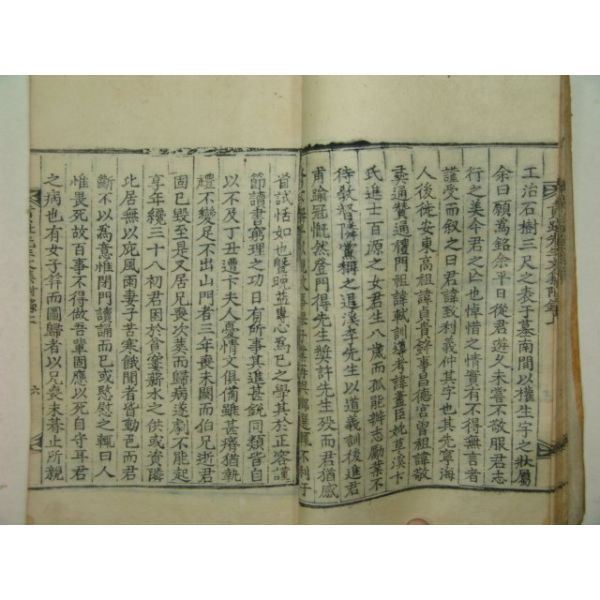 工治石樹三尺之表于墓南間以權生宇之狀屬
余曰願爲銘余平日後君遊久未嘗不敬服君志
行之美今君之亡也悼惜之情實有不得無言者
謹受而叙之曰君諱致利義仲其字也其先寧海
人後徙安東高祖諱貞貴錄事昌德宮曾祖諱敬
通贊通禮門祖諱軾訓導考諱
氏進士百源之女君生八歲而孤能辦志勵業不
待敎督隣黨稱之退溪李先生以道義訓後進君
甫踰冠慨然登門得先生奬許先生歿而君猶感
首試恬如也暨晩益專心爲己之學其於正容謹
節讀書窮理之功日有所事其進甚銳同類皆自
以不及丁丑遭卞夫人憂情文俱備雖甚瘠猶執
禮不變足不出山門者三年喪未闋而伯兄逝君
固已毁至是又居兄喪次荐而歸病遂劇不能起
享年纔三十八初君困於貧窶薪水之供或資隣
比居無以庇風雨妻子苦寒餓聞者皆動色而君
斷不以爲意惟閉門讀誦而已或慰之輒曰人
惟畏死故百事不得做吾輩固應以死自守耳君
之病也有女子笄而圖歸者以兄喪未葬止所親
六